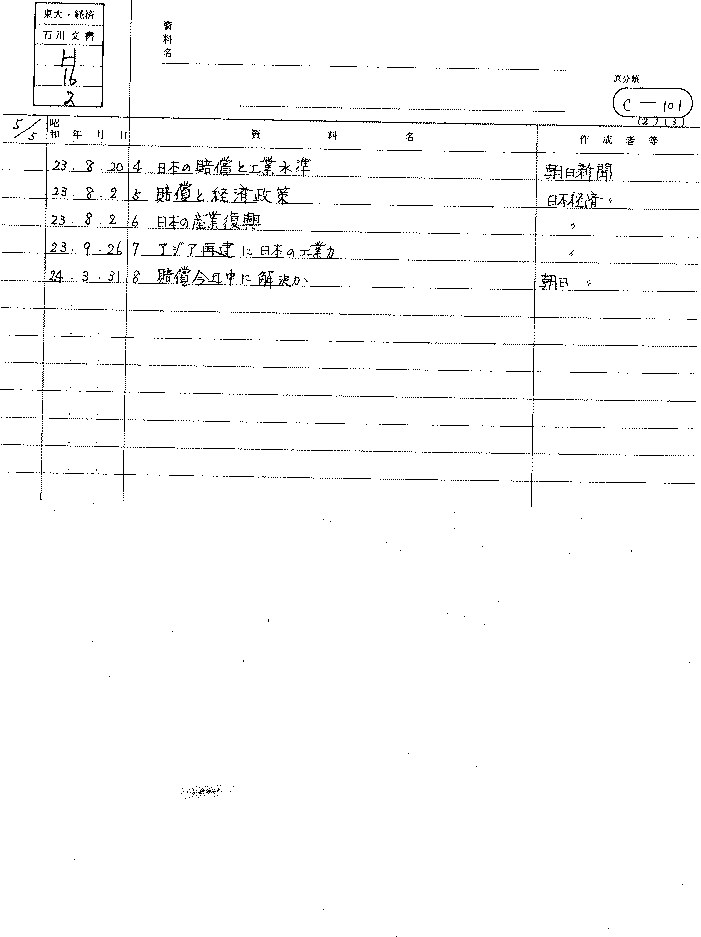 東大・経済
石川文書
H
16
2
資料名
原分類
C — 101
(2) (3)
5/5 昭和 年 月 日 資料名 作成者等
23. 8. 20 4 日本の賠償と工業水準 朝日新聞
23. 8. 2 5 賠償と経済政策 日本経済〃
23. 8. 2 6 日本の産業復興 〃
23. 9. 26 7 アジア再建に日本の工業力 〃
24. 3. 31 8 賠償今月中に解決か 朝日 〃